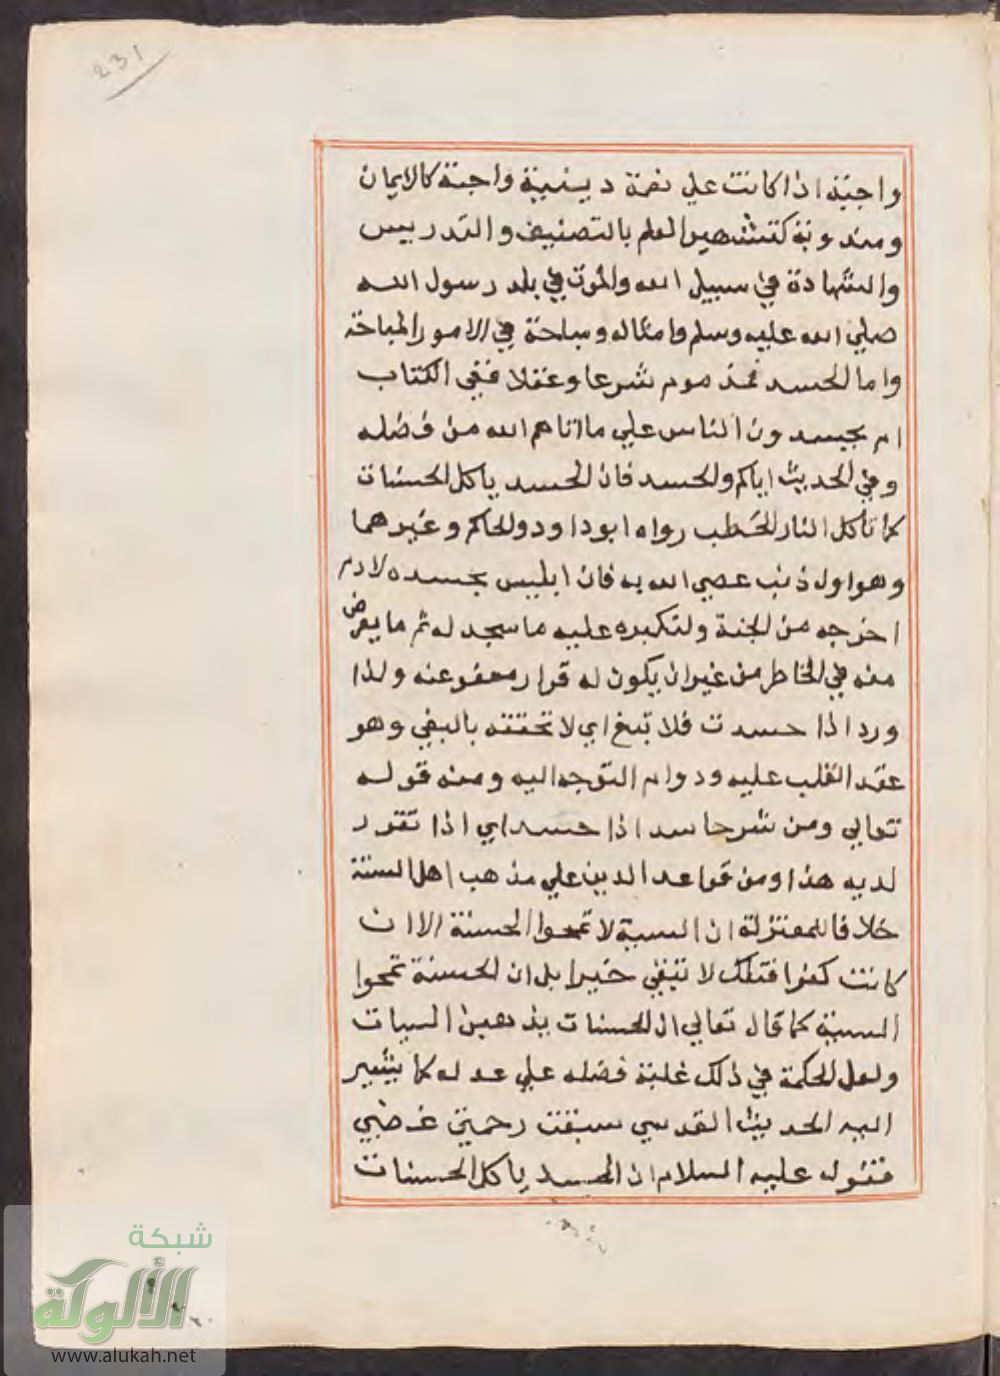 231
واجبة اذا كانت علي نعمة دينية واجبة كالايمان
ومندوبة كتشهير العلم بالتصنيف والتدريس
والشهادة في سبيل الله والموت في بلد رسول الله
صلي الله عليه وسلم وامثاله ومباحة في الامور المباحة
واما الحسد فمذموم شرعا وعقلا ففي الكتاب
ام يحسدون الناس علي ما اتاهم الله من فضله
وفي الحديث اياكم والحسد فان الحسد ياكل الحسنات
كما تاكل النار الحطب رواه ابوداود والحاكم وغيرهما
وهو اول ذنب عصي الله به فان ابليس بحسده لادم
اخرجه من الجنة ولتكبره عليه ما سجد له ثم ما يعرض
منه في الخاطر من غير ان يكون له قرار معفو عنه ولذا
ورد اذا حسدت فلا تبغ اي لا تحققه بالبغي وهو
عقد القلب عليه ودوام التوجه اليه ومنه قوله
تعالي ومن شر حاسد اذا حسد اي اذا تقرر
لديه هذا ومن قواعد الدين علي مذهب اهل السنة
خلافا للمعتزلة ان السيية لا تمحوا الحسنة الا ان
كانت كفرا فتلك لا تبقي خيرا بل ان الحسنة تمحوا
السيية كما قال تعالي ان الحسنات يذهبن السيات
ولعل الحكمة في ذلك غلبة فضله علي عدله كما يشير
اليه الحديث القدسي سبقت رحمتي غضبي
فقوله عليه السلام ان الحسد ياكل الحسنات
شبكة
الألوكة
www.alukah.net